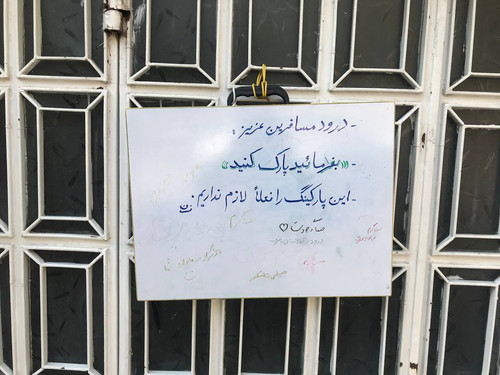 - درود مسافرین عزیز:
- «بفرمائید پارک کنید»
- این پارکینگ را فعلاً لازم نداریم.